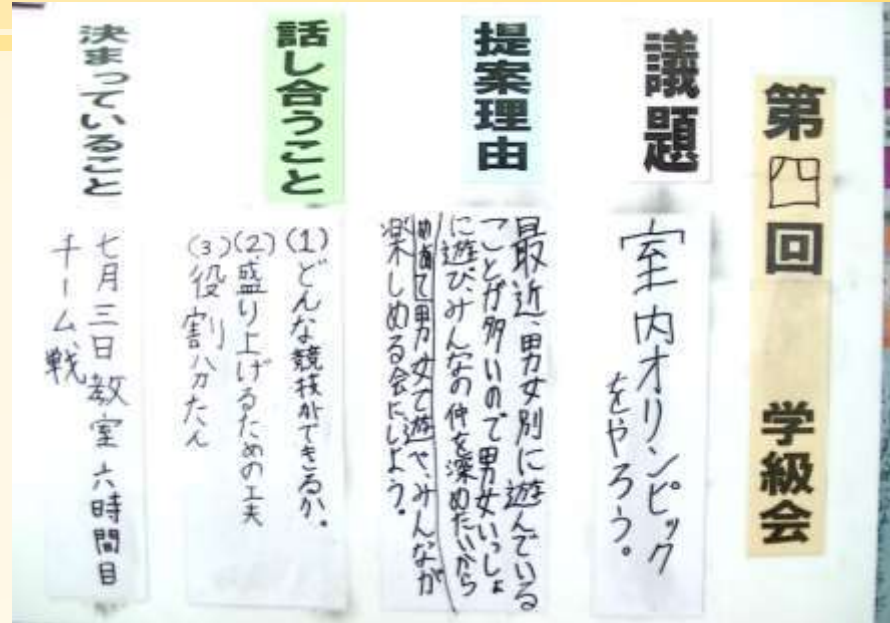 第四回 学級会
議題
室内オリンピック
をやろう。
提案理由
最近、男女別に遊んでいる
ことが多いので男女いっしょ
に遊び、みんなの仲を深めたいから
めあて男女で遊べ、みんなが
楽しめる会にしよう。
話し合うこと
(1)どんな競技ができるか。
(2)盛り上げるための工夫
(3)役割分たん
決まっていること
七月三日教室 六時間目
チーム戦